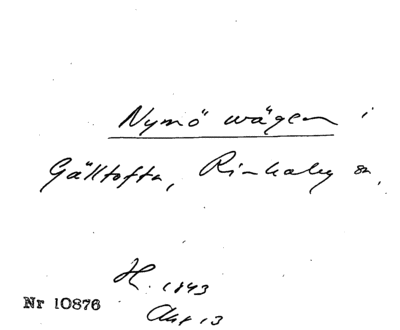 Nymö wägen i
Gälltofta, Rinkaby sn,
H. 1843
Akt 13
Nr 10876